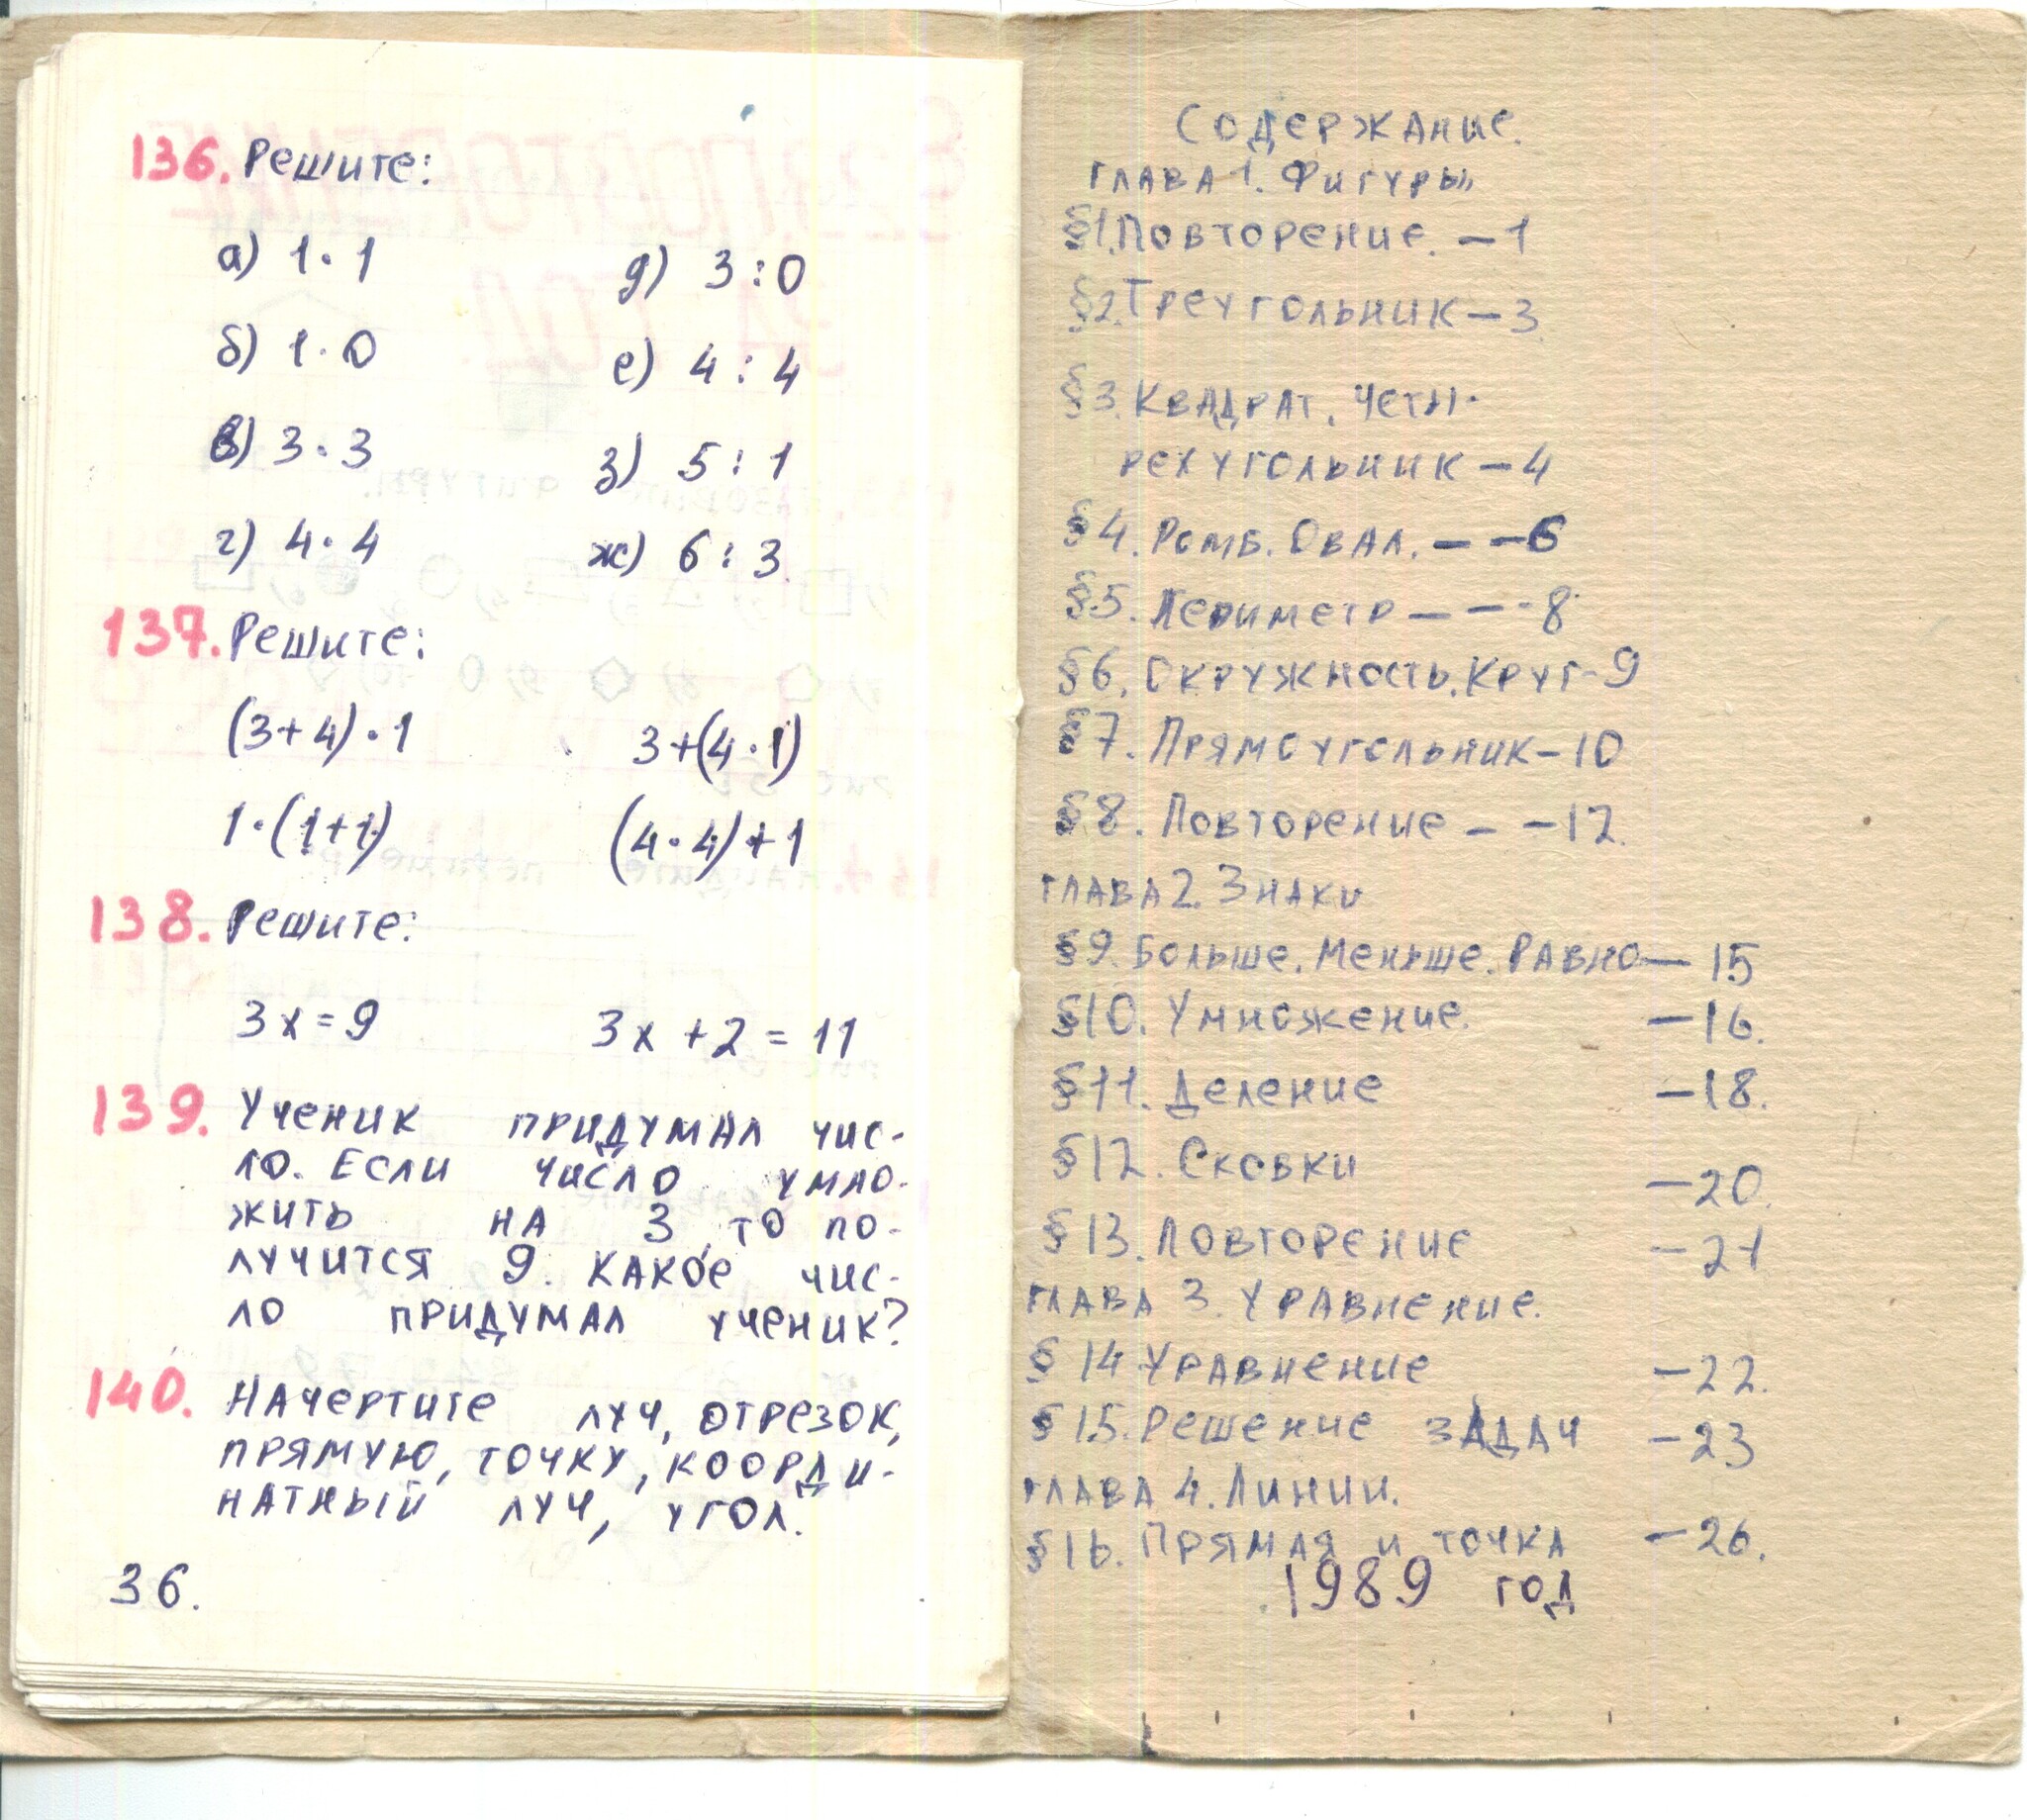 136. Решите:
а) 1·1
д) 3:0
б) 1·0
е) 4:4
в) 3·3
з) 5:1
г) 4·4
ж) 6:3
137. Решите:
(3+4)·1
3+(4·1)
1·(1+1)
(4·4)+1
138. Решите:
3х=9
3х+2=11
139. Ученик придумал чис-
ло. Если число умно-
жить на 3, то по-
лучится 9. Какое чис-
ло придумал ученик?
140. Начертите луч, отрезок,
прямую, точку, коорди-
натный луч, угол.
36.
Содержание.
Глава 1. Фигуры
§1. Повторение. – 1
§2. Треугольник – 3
§3. Квадрат. Четы-
рехугольник – 4
§4. Ромб. Овал. – – 6
§5. Периметр – – - 8
§6. Окружность. Круг - 9
§7. Прямоугольник – 10
§8. Повторение – – 12.
Глава 2. Знаки
§9. Больше. Меньше. Равно – 15
§10. Умножение. – 16.
§11. Деление – 18.
§12. Скобки – 20.
§13. Повторение – 21
Глава 3. Уравнение.
§14 Уравнение – 22.
§15. Решение задач – 23
Глава 4. Линии.
§16. Прямая и точка – 26.
1989 год